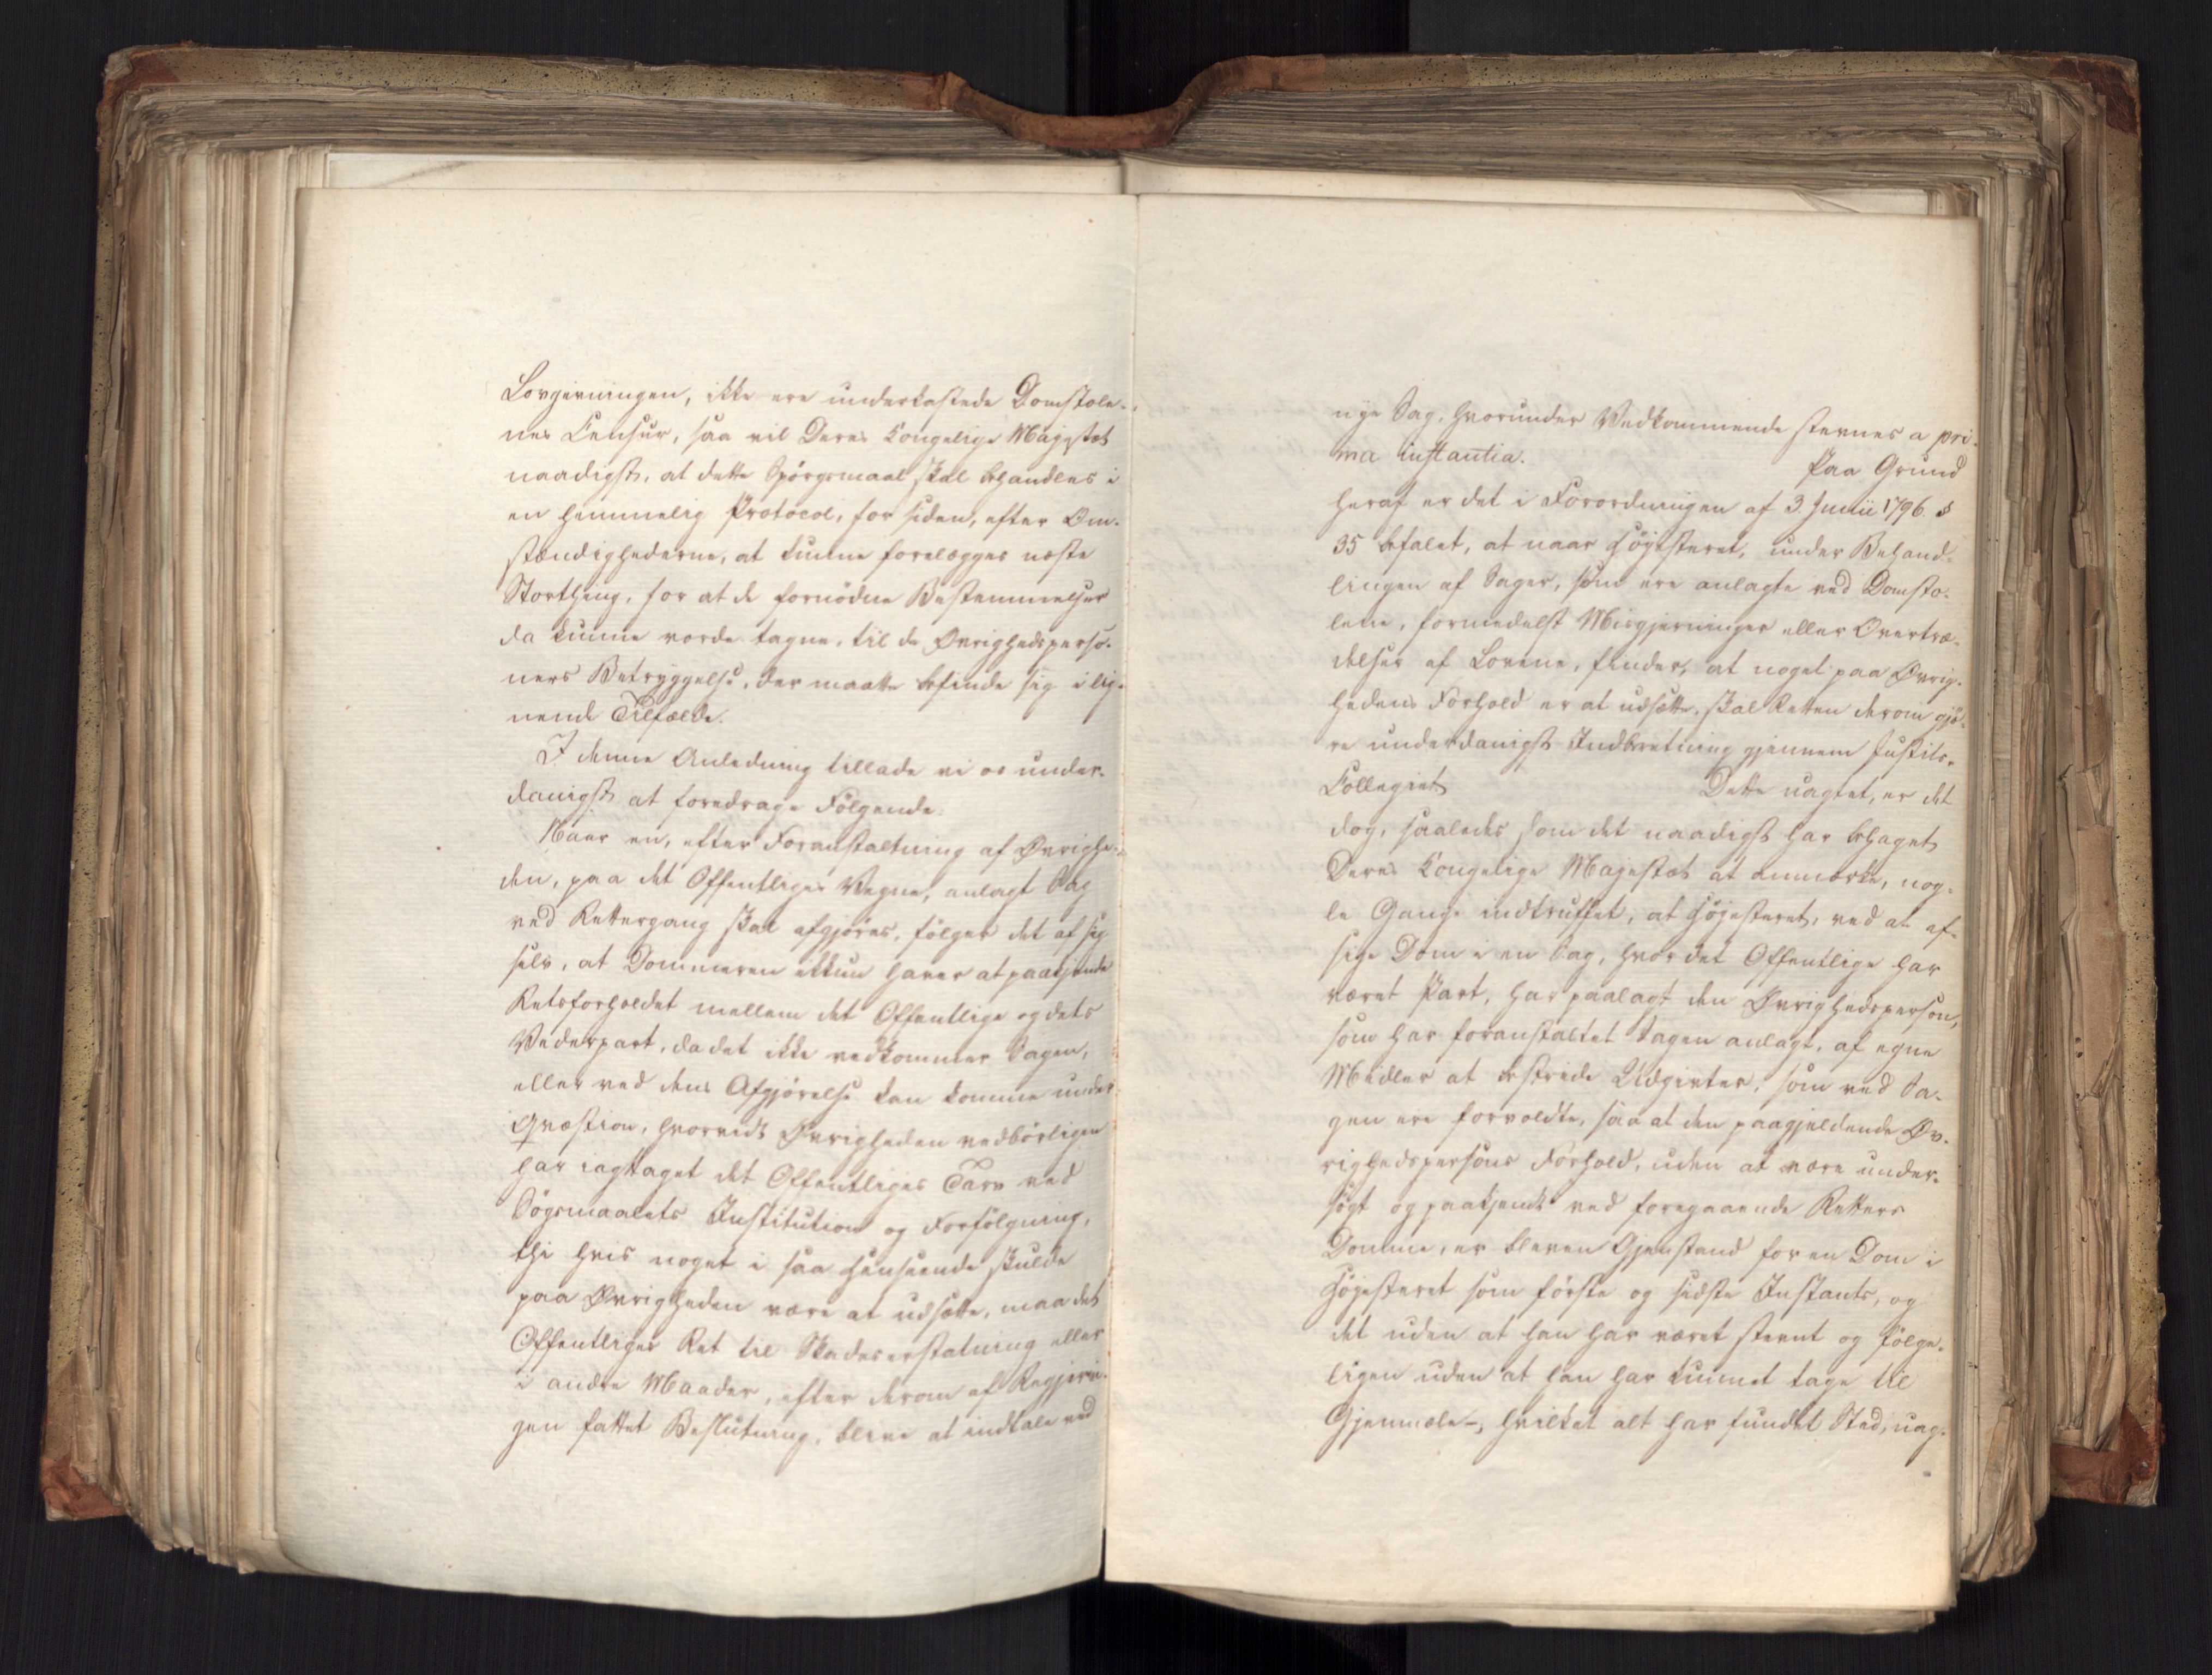 Lovgivningen, ikke ere underkastede Domstole-
nes Censur, saa vil Deres Kongelige Majestæt
naadigst, at dette Spörgsmaal skal behandles i
en hemmelig Protocol, for siden, efter Om-
stændighederne, at kunne forelægges næste
Storthing, for at de fornödne Bestemmelser
da kunne vorde tagne, til de Øvrighedsperso-
ners Betryggelse, der maatte befinde sig i lig-
nende Tilfælde.
I denne Anledning tillade vi os under-
danigst at foredrage Fölgende:
Naar en, efter Foranstaltning af Øvrighe-
den, paa det Offentliges Vegne, anlagt Sag
ved Rettergang skal afgjöres, fölger det af sig
selv, at Dommeren ikkun haver at paakjende
Retsforholdet mellem det Offentlige og dets
Vederpart, da det ikke vedkommer Sagen,
eller ved dens Afgjörelse kan komme under
Qvæstion, hvorvidt Øvrigheden vedbörligen
har iagttaget det Offentliges Tarv ved
Sögsmaalets Institution og Forfölgning,
thi hvis noget i saa Henseende skulde
paa Øvrigheden være at udsætte, maa det
Offentliges Ret til Skadeserstatning eller
i andre Maader, efter derom af Regjerin-
gen fattet Beslutning, blive at indtale ved
nye Sag, hvorunder Vedkommende stevnes a pri-
ma instantia. Paa Grund
heraf er det i Forordningen af 3. Junii 1796. §
35 befalet, at naar Höjesteret, under Behand-
lingen af Sager, som ere anlagte ved Domsto-
lene, formedelst Misgjerninger eller Overtræ-
delser af Lovene, finder, at noget paa Øvrig-
hedens Forhold er at udsætte, skal Retten derom gjö-
re underdanigst Indberetning gjennem Justits-
Collegiet. Dette uagtet, er det
dog, saaledes som det naadigst har behaget
Deres Kongelige Majestæt at anmærke, nog-
le Gange indtruffet, at Höjesteret, ved at af-
sige Dom i en Sag, hvor det Offentlige har
været Part, har paalagt den Øvrighedsperson,
som har foranstaltet Sagen anlagt, af egne
Midler at bestride Udgivter, som ved Sa-
gen ere forvoldte, saa at den paagjeldende Øv-
righedspersons Forhold, uden at være under-
sögt og paakjendt ved foregaaende Retters
Domme, er bleven Gjenstand for en Dom i
Höjesteret som förste og sidste Instants, og
det uden at han har været stevnt og fölge-
ligen uden at han har kunnet tage til
Gjenmæle -, hvilket alt har fundet Sted, uag-